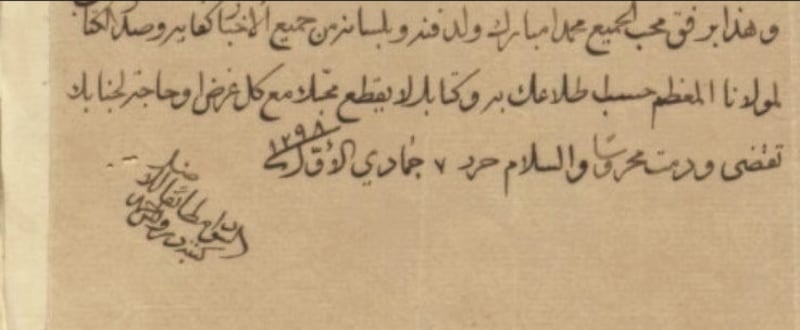 وهذا برفق محب الجميع محمد امبارك ولد فند وبلسانه من جميع الأخبار كفايه وصدر الكتاب
لمولانا المعظم حسب طلاعك به وكتابك لا يقطع محبك مع كل غرض او حاجة لجنابك
تقضى ودمت محروسا والسلام حرر ٧ جمادي الأول سنة ١٢٩٨